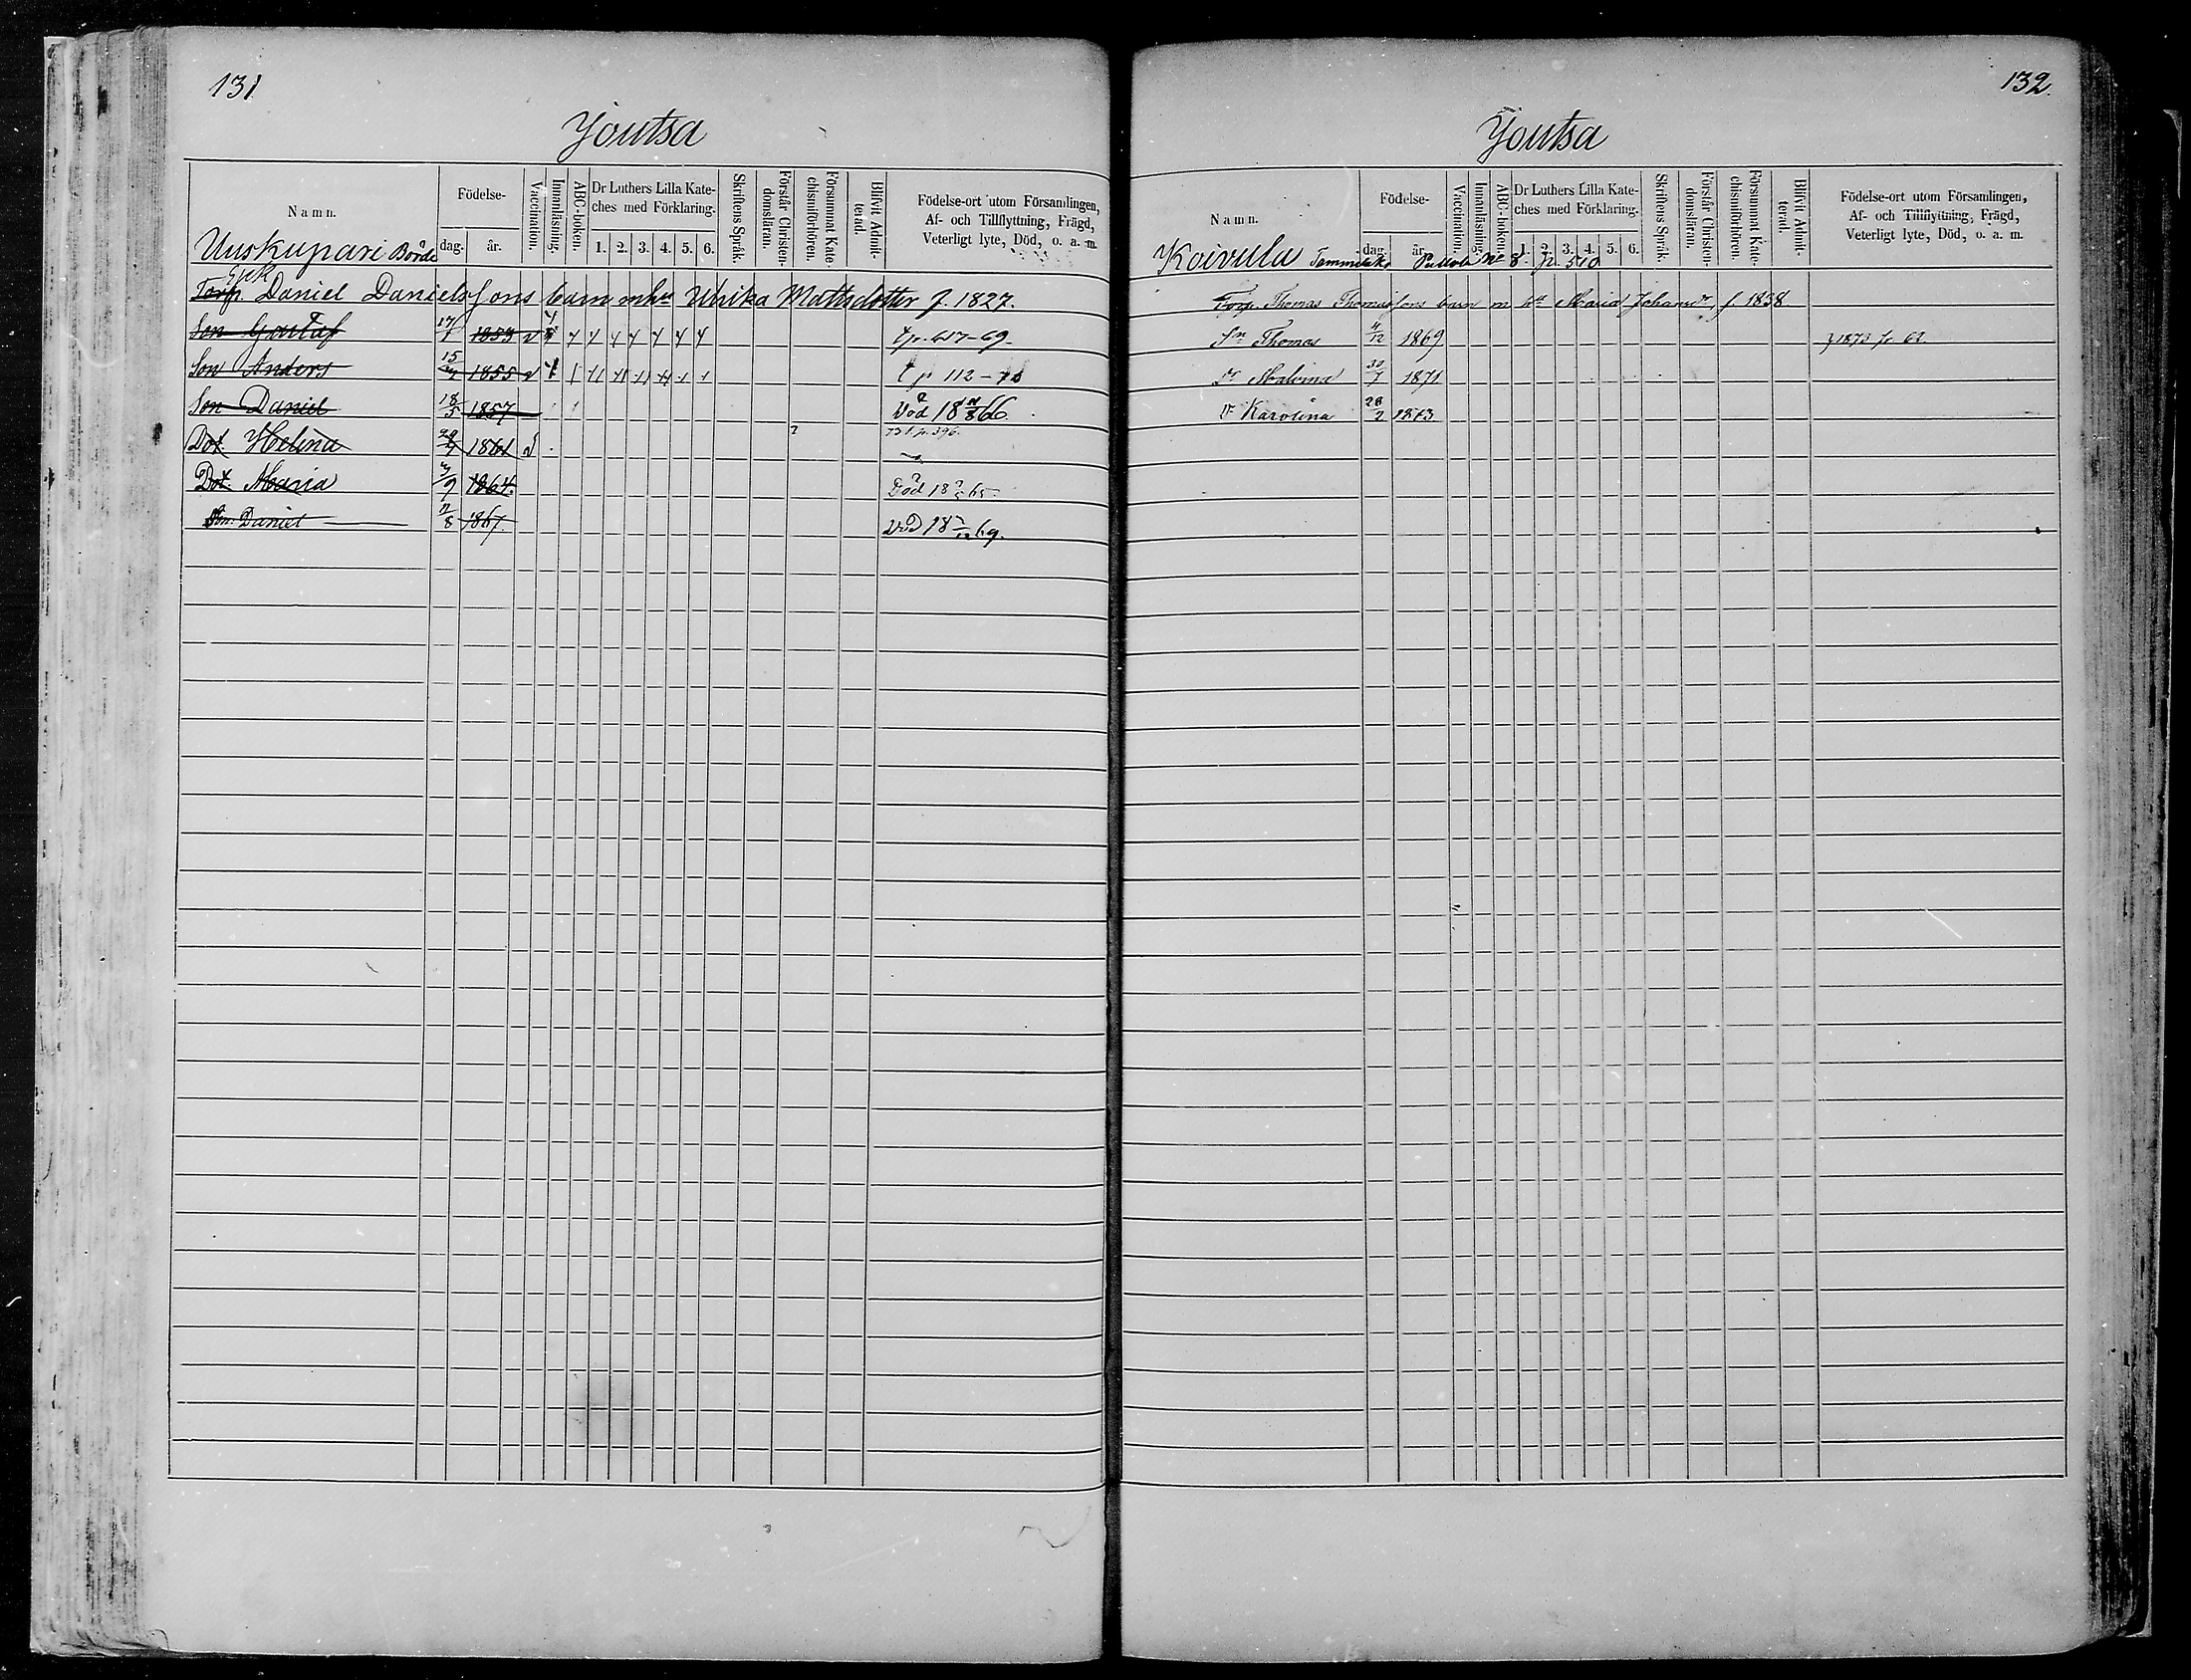 131
Joutsa
Namn.
Födelse-
dag.
år.
Vaccination.
Innanläsning.
ABC-boken.
Dr Luthers Lilla Kate-
ches med Förklaring.
1. 2. 3. 4. 5. 6.
Skriftens Språk.
Förstår Christen-
domsläran.
Försummat Kate-
chismiförhören.
Blifvit Admit-
terad.
Födelse-ort utom Församlingen,
Af- och Tillflyttning, Frägd,
Veterligt lyte, Död, o. a. m.
Uuskupari
Torp. Daniel Danielssons barn m hu Ulrika Mattsdotter f. 1827.
Son Gustaf 17/1 1853
Son Anders 1855 112-70
Son Daniel 18/5 1857 Död 18 66
Dot Helena 1861 p. 396.
Dot. Maria 1864. Död 18 65
Son. Daniel 1867. Död 18 69.
132.
Joutsa
Namn.
Födelse-
dag.
år.
Vaccination.
Innanläsning.
ABC-boken.
Dr Luthers Lilla Kate-
ches med Förklaring.
1. 2. 3. 4. 5. 6.
Skriftens Språk.
Förstår Christen-
domsläran.
Försummat Kate-
chismiförhören.
Blifvit Admit-
terad.
Födelse-ort utom Församlingen,
Af- och Tillflyttning, Frägd,
Veterligt lyte, Död, o. a. m.
Koivula No 8. p. 510
Torp. Thomas Thomassons barn m hu Maria Johansdr f. 1838
Sn Thomas 4/12 1869 1873 p 62
Dr Malvina 1871
Dr Karolina 28/2 1873